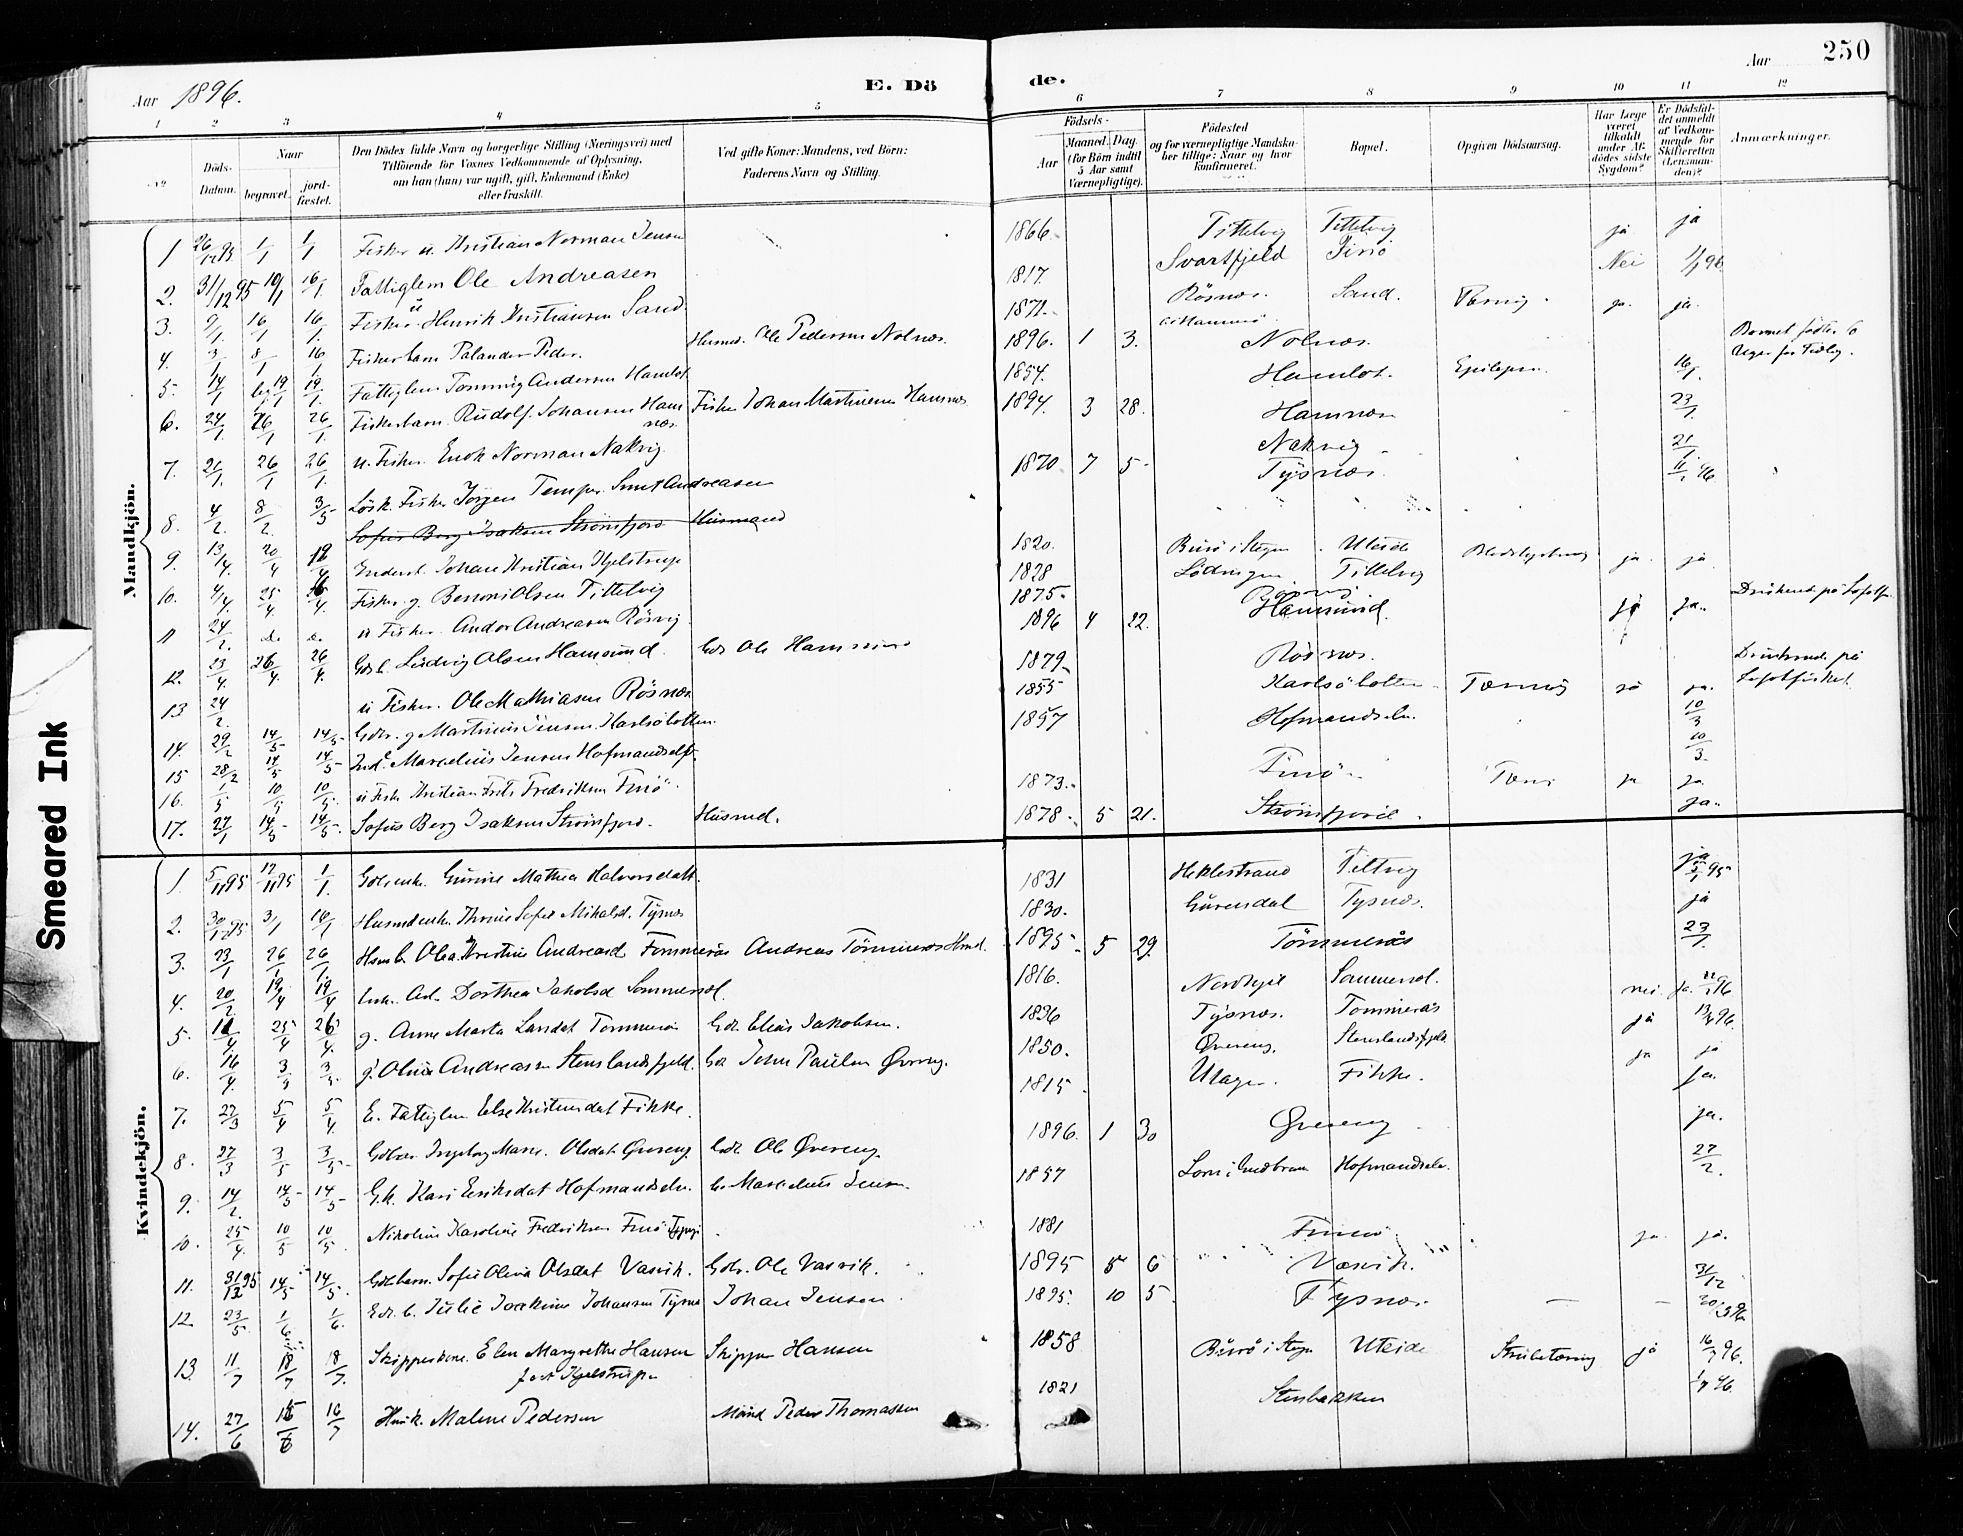 Aar 1896.
E. Dö
de.
Aar 250
1 2 3 4 5
6 7 8 9 10 11 12
Döds-Datum.
Naar
begravet. jord-fæstet.
Den Dödes fulde Navn og borgerlige Stilling (Næringsvei) med
Tilföiende for Voxnes Vedkommende af Oplysning,
om han (hun) var ugift, gift, Enkemand (Enke)
eller fraskilt.
Ved gifte Koner: Mandens, ved Börn:
Faderens Navn og Stilling.
Födsels-
Aar
Maaned. Dag.
(for Börn indtil
5 Aar samt
Værnepligtige).
Födested
og for værnepligtige Mandska-
ber tillige: Naar og hvor
konfirmeret.
Bopæl.
Opgiven Dödsaarsag.
Har Læge
været
tilkaldt
under Af-
dödes sidste
Sygdom?
Er Dödsfal-
det anmeldt
af Vedkom-
mende for
Skifteretten
(Lensman-
den)?
Anmærkninger.
Mandkjön.
1 26/12 95 1/1 1/1 Fisker u. Kristian Norman Jensen 1866 Tittelvig Tittelvig ja ja
2. 31/12 95 10/1 16/1 Fattiglem Ole Andreasen 1817. Svartfjeld Finö Nei 1/1 96
3. 9/1 16/1 16/1. Fisker u Henrik Kristiansen Sand 1871. Rösnæs. Sand. Tæring. ja. ja.
4. 3/1 8/1 16/1 Fiskerbarn Palander Peder. Husmd. Ole Pedersen Nolnæs. 1896. 1 3. Nolnæs. Barnet födtes 6 Uger for Tidlig.
5. 14/1 19/1 19/1. Fattiglem Tommig Andersen Hamlot 1854. Hamlot. Epilepsi. 16/1.
6. 24/1. 26/1 26/1. Fiskerbarn Rudolf Johansen Hamnæs Fisker Johan Martinussen Hamnæs 1894. 3 28. Hamnæs 23/1.
7. 21/1. 26/1 26/1. u. Fisker. Enok Norman Nakvig 1870 7 5 Nakvig 21/1.
8. 4/2. 8/2. 3/5 Lösk. Fisker Jörgen Andreasen Tysnæs
Sofus Berg Isaksen Strömfjord Husmand
9. 13/4. 20/4 Gaardbr. Johan Kristian Kjelstrup 1820. Burö i Stegen Uteide Blodstyrtning ja ja
10. 4/4. 25/4. Fisker g. Bernoni Olsen Tittelvig 1828 Lödingen Tittelvig
11 24/2. do. do. u Fisker. Andor Andreasen Rösvig 1875. Rösvig ja. Druknede på Lofotf.
12. 23/4. 26/4. 26/4. Gdsb. Ludvig Olsen Hamsund. Gdr Ole Hamsund 1896 4 22. Hamsund.
13 24/2. u Fisker. Ole Mathiasen Rösnæs 1879. Rösnæs. Druknede på Lofotfisket.
14. 29/2 14/5 14/5 Gdbr. g Martinus Jensen Karlsölotten. 1855 Karlsölotten Tæring ja ja.
15 28/2 14/5 14/5 Ind. Marselius Jensen Hofmandselv. 1857 Hofmandselv. 10/3
16. 1/5 10/5 10/5. u Fisker Kristian Frits Fredriksen Finö. 1873. Finö Tæring ja ja.
17. 27/1 14/5 14/5. Sofus Berg Isaksen Strömfjord. Husmd. 1878. 5 21. Strömfjord. ja.
Kvindekjön.
1. 5/11 95 17/11 95 1/1. Gdbr.enk. Gurine Mathea Halvorsdatt. 1831 Heklestrand Tiltvig ja 3/1 95
2. 30/12 95 3/1 16/1 Husmdenk. Sofie Mikalsd. Tysnæs 1830. Gurendal Tysnæs. ja
3. 23/1 26/1. 26/1. Hsm b. Olea Kristine Andreasd Tömmerås Andreas Tömmerås Hsmd. 1895. 5 29. Tömmerås 23/1.
4. 20/2 19/4 19/4 Enk. Dorthea Jakobsd Sommersel. 1816. Sommersel. nei. ja. 22/1 96
5. 25/4 26/4. g. Anne Marta Larsdat Tommerås Gdr. Elias Jakobsen. 1836 Tysnæs. Tommerås ja
6. 16/4. 3/5 3/5. g. Olina Andreassen Stenslandsfjeld. Gdr Jens Paulsen Övereng. 1850. Övereng. Stenslandsfjeld ja ja
7. 27/3 5/4 5/4. E. Fattiglem Else Kristensdat Fikke. 1815. Ulager. Fikke. ja.
8. 27/3 3/5 3/5 Ingeborg Marie Olsdat Övereng. Gdr. Ole Övereng. 1896. 1 30 Övereng ja.
9. 14/2. 14/5 14/5 G.k. Kari Eriksdat Hofmandselv. Marselius Jensen. 1857 Lom i Gudbran Hofmandselv. 27/2.
10. 25/4. 10/5 10/5. Nikoline Karoline Fredriksen Finö 1881 Finnö ja ja.
11. 31/12 95 14/5 14/5. Gdbarn. Sofie Olina Olsdat Vasvik. Gdbr. Ole Vasvik. 1895 5 6 Vasvik. 31/12
12. 23/5. 1/6 1/6. Gdr. b. Julie Joakime Johansen Tysnæs Johan Jensen 1895. 10 5. Tysnæs.
13. 11/7 18/7 18/7. Skipperkone. Elen Margrethe Hansen Skipper Hansen 1858 Burö i Stegen Uteide Strubetæring ja 16/7 96.
född Kjelstrup
14. 27/6 16/7 Malene Pedersen Mand Peder Thomassen 1821 Stenbakken
Smeared Ink